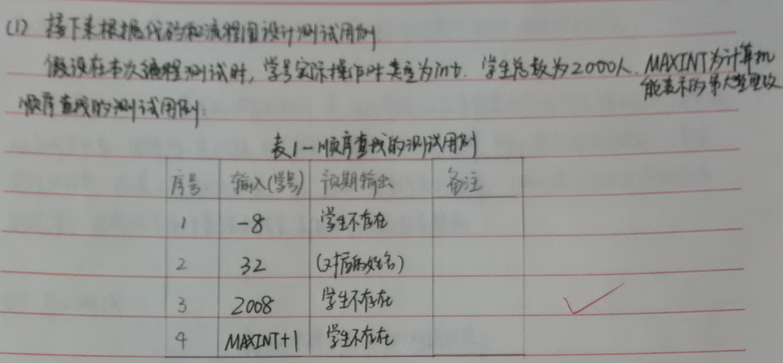 (1) 接下来根据代码和流程图设计测试用例
假设在本次编程测试时，学号实际操作时类型为int. 学生总数为2000人. MAXINT为计算机
能表示的最大整型数
顺序查找的测试用例:
表1-顺序查找的测试用例
序号 输入(学号) 预期输出 备注
1 -8 学生不存在
2 32 (对应的姓名)
3 2008 学生不存在
4 MAXINT+1 学生不存在